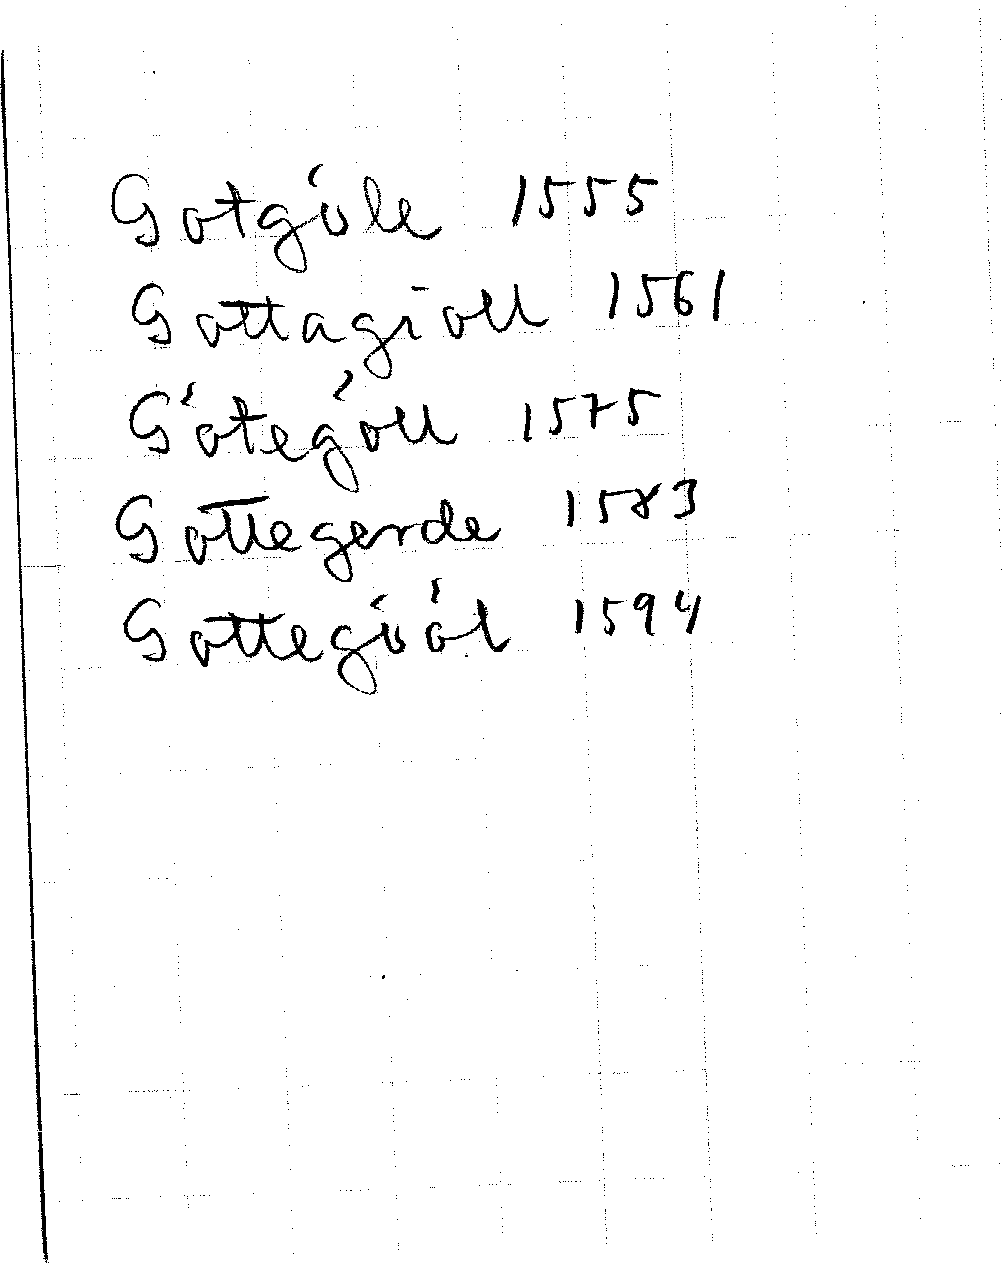 Gotgöle 1555
Gottagioll 1561
Götegöll 1575
Gottegerde 1583
Gottegiöl 1594